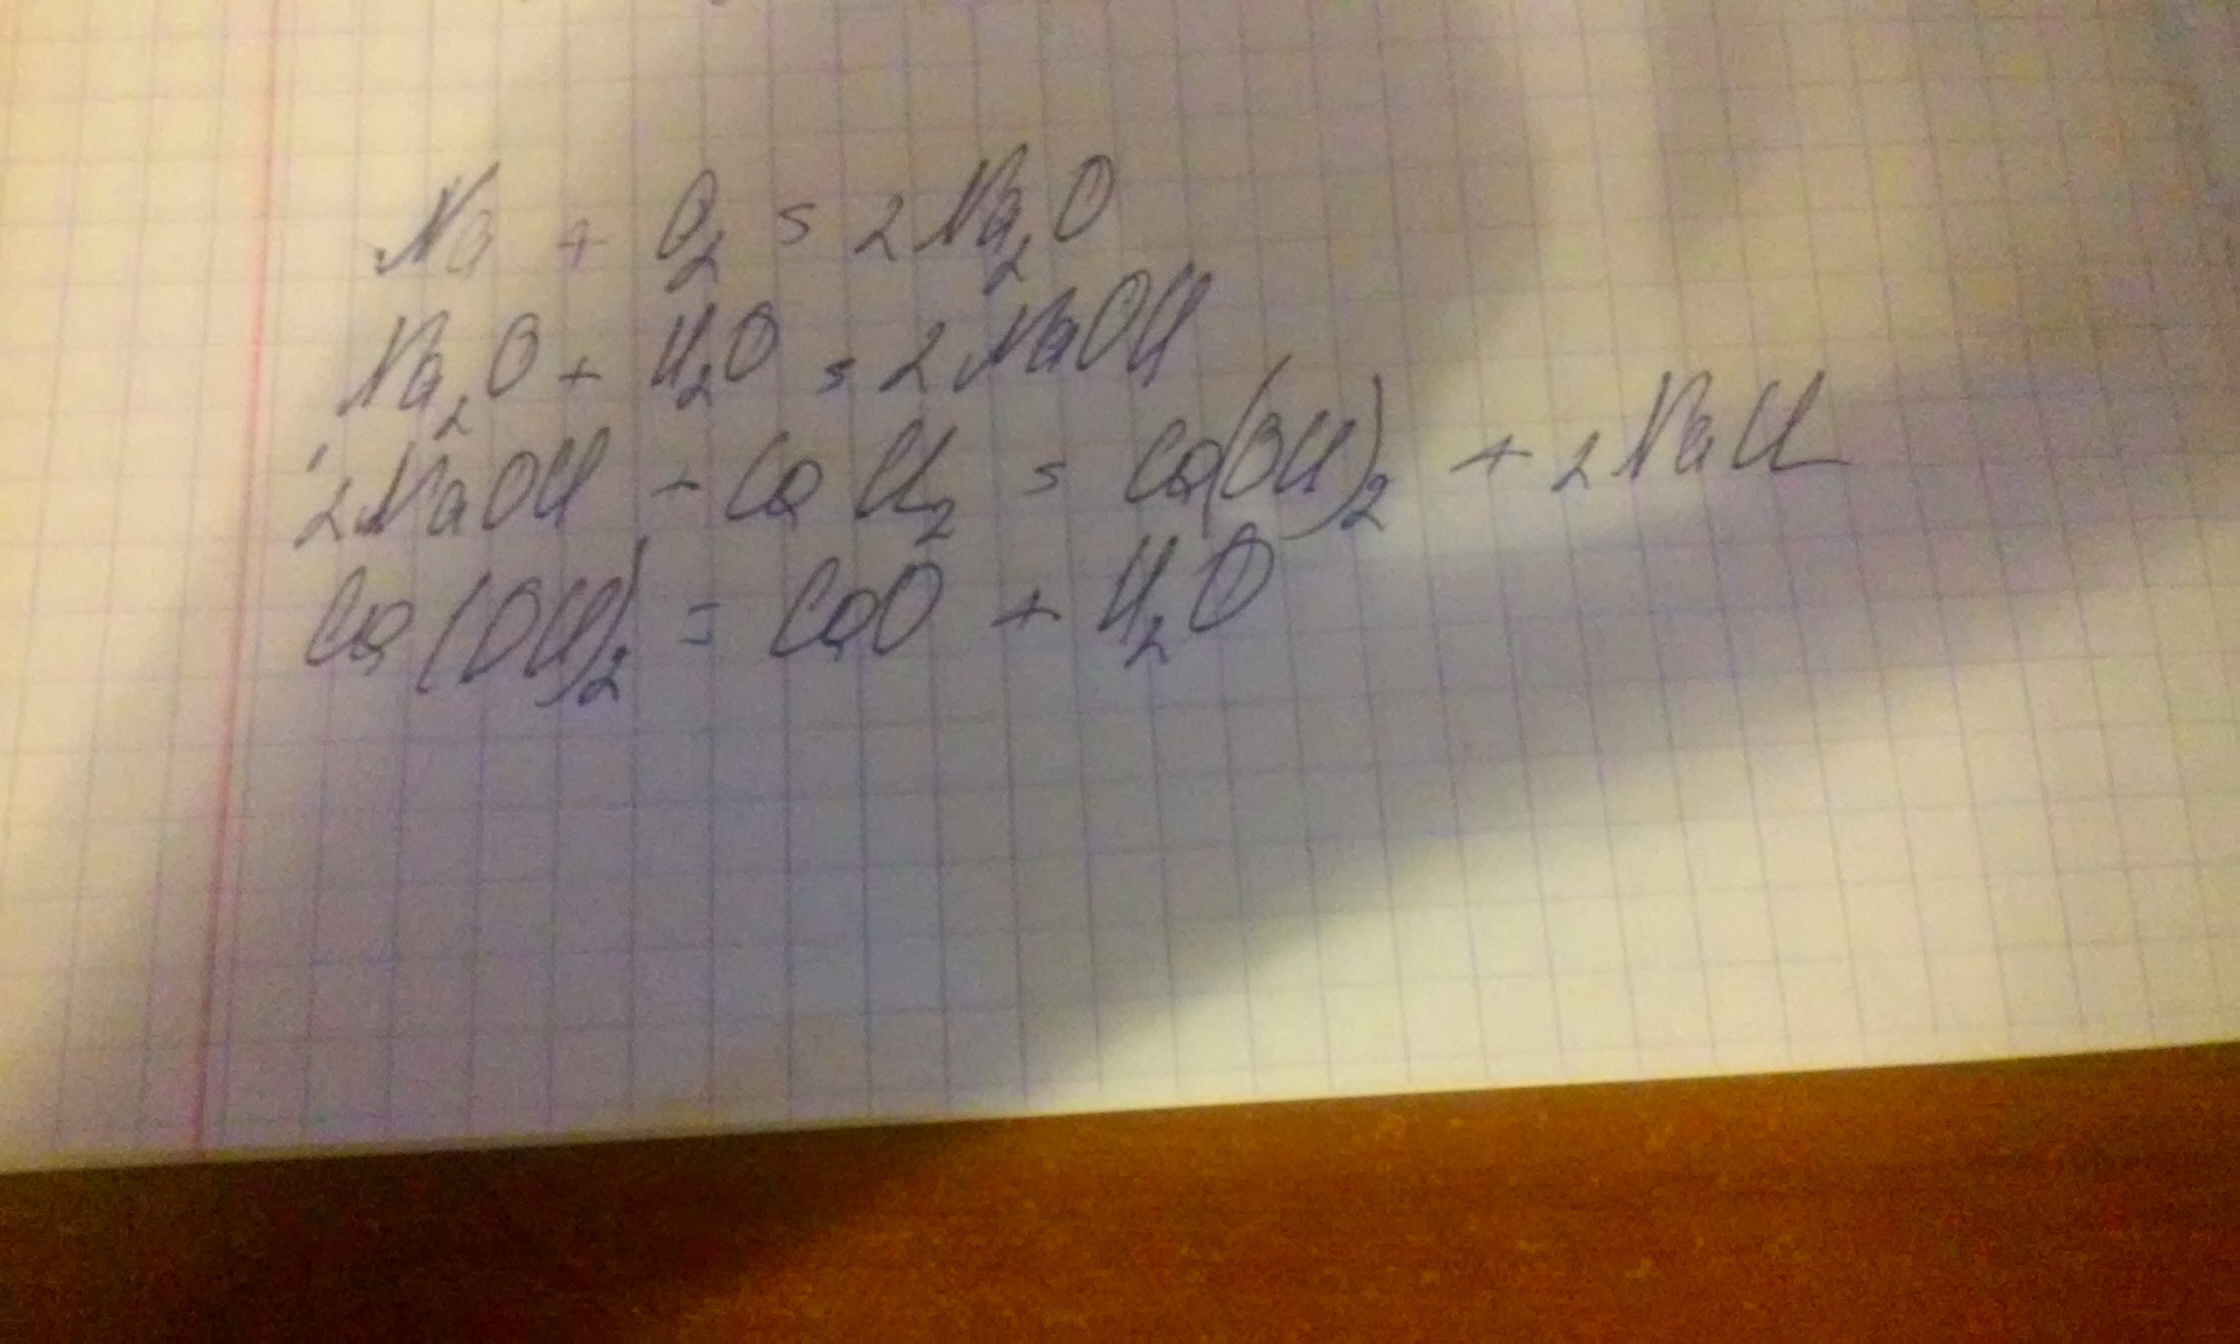 Na + O₂ = 2Na₂O
Na₂O + H₂O = 2NaOH
2NaOH + CaCl₂ = Ca(OH)₂ + 2NaCl
Ca(OH)₂ = CaO + H₂O